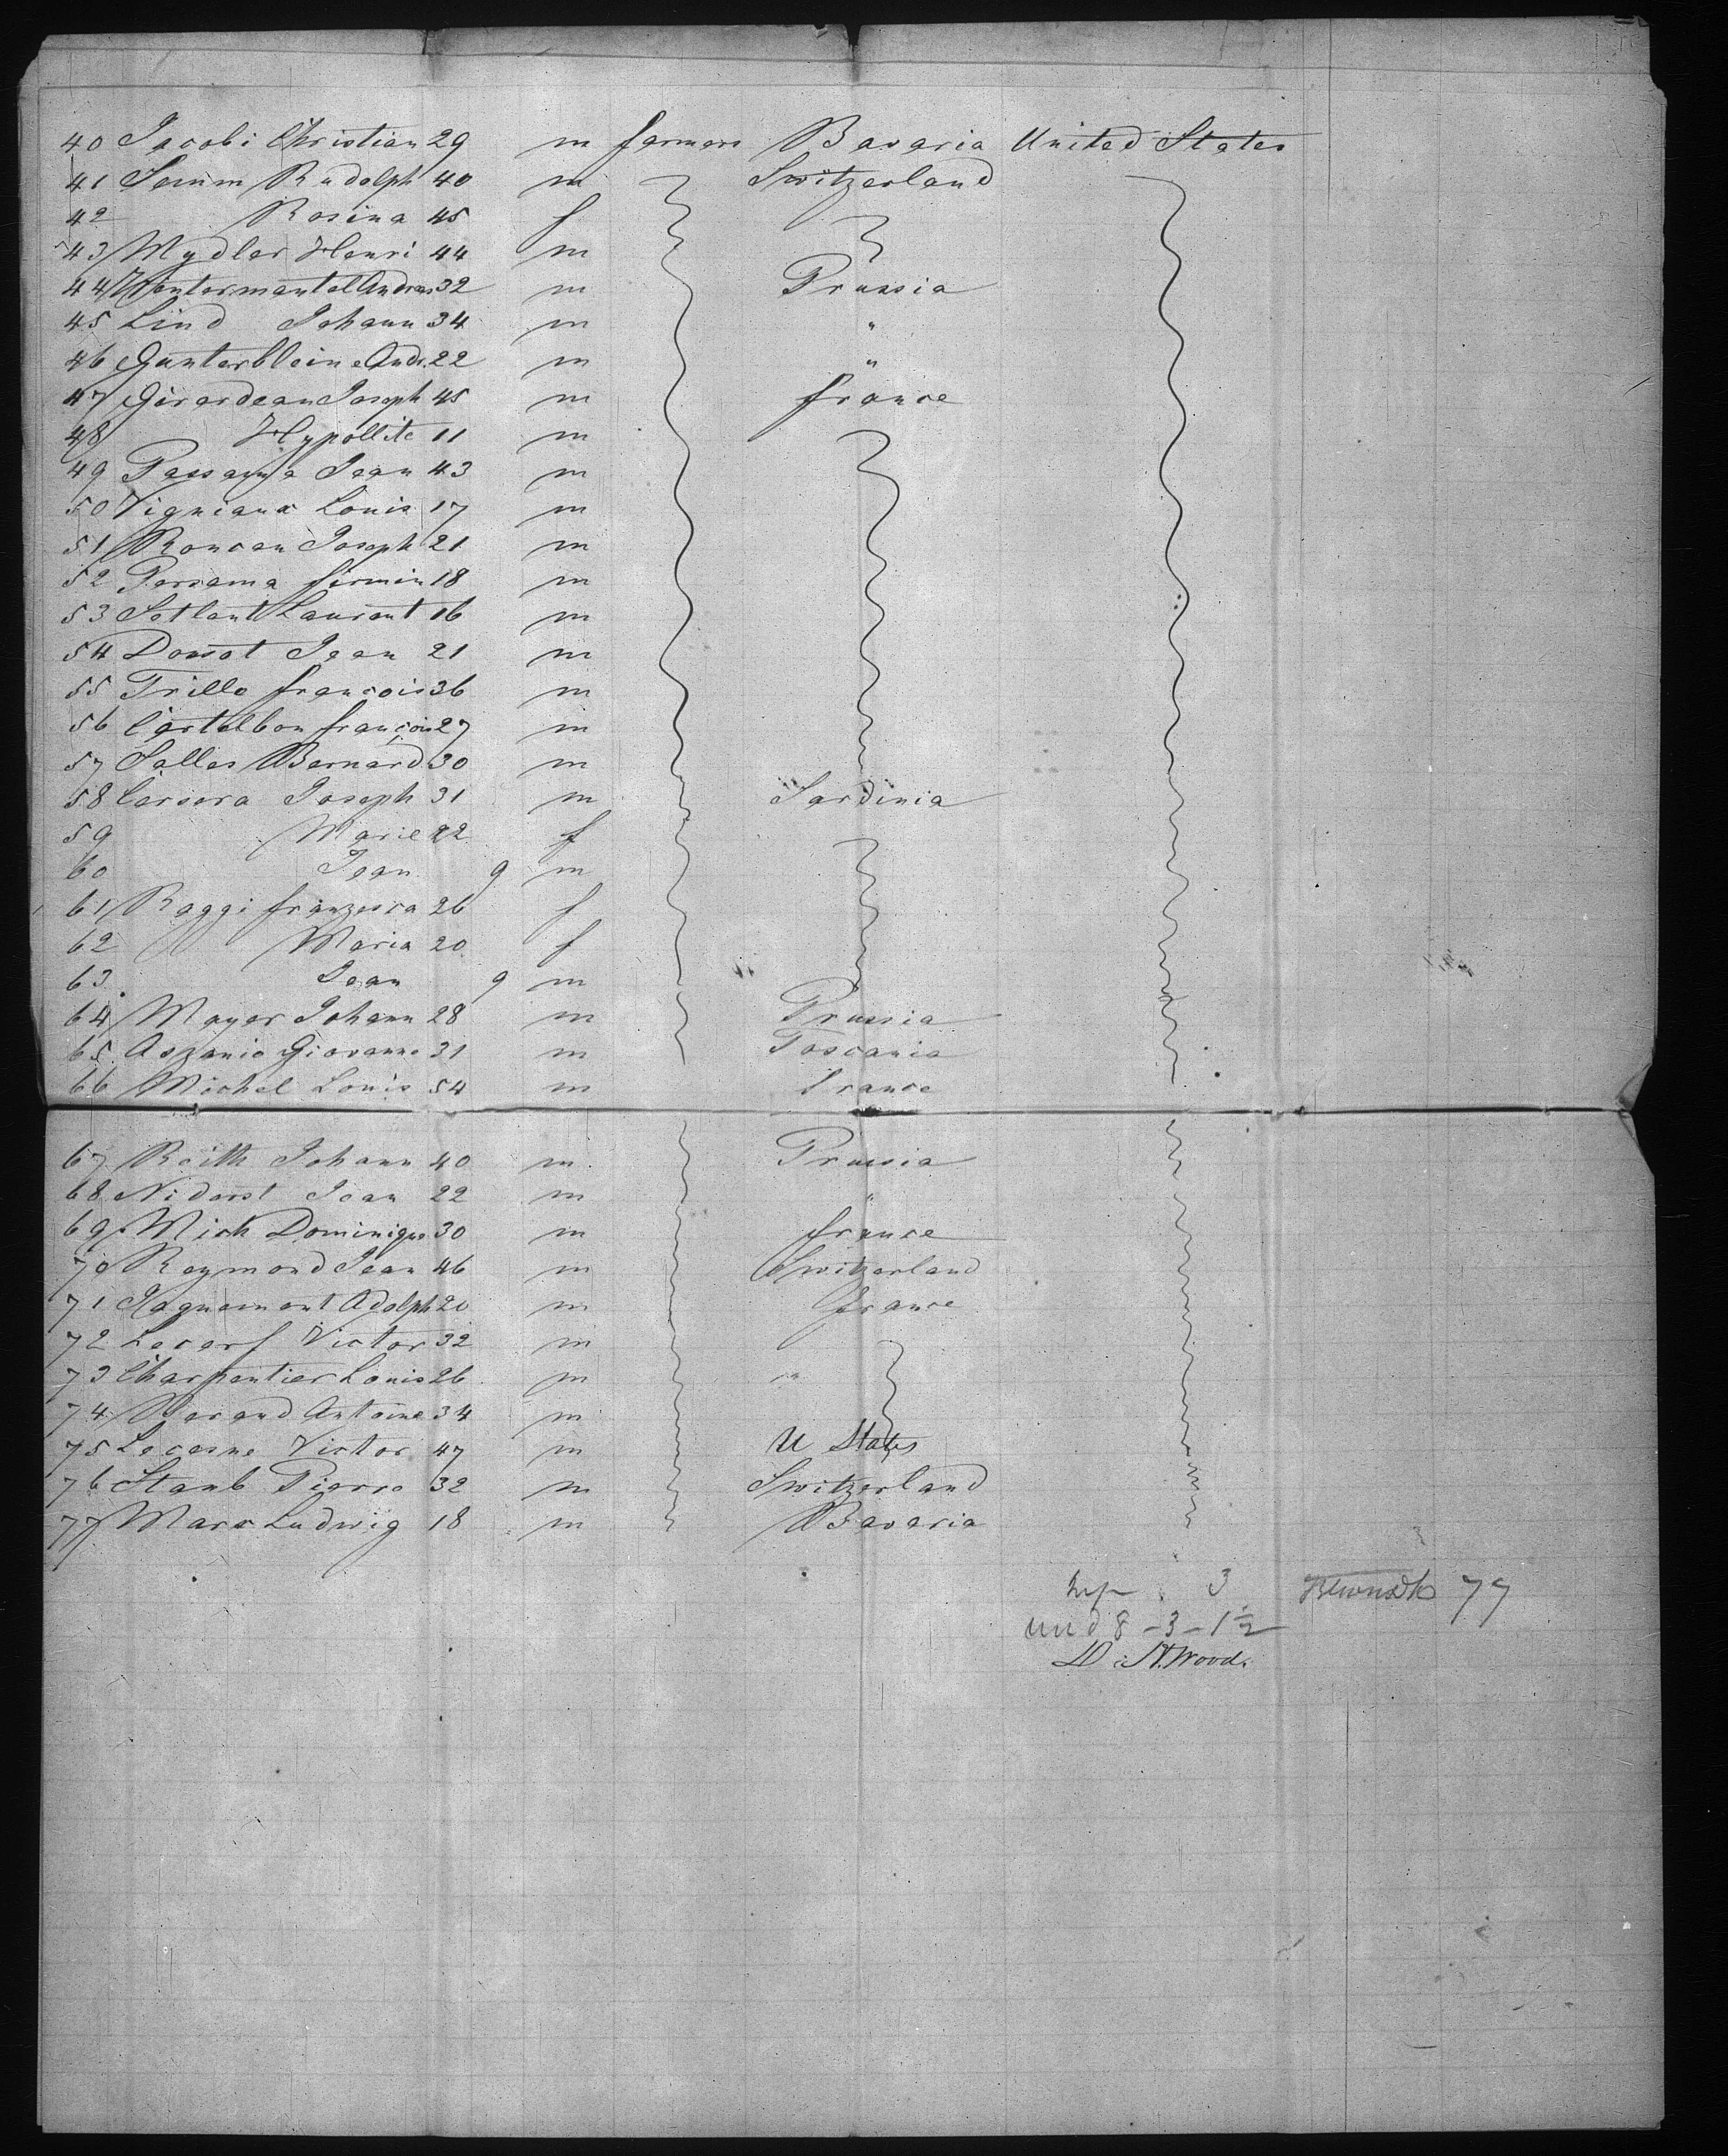 40 Jacobi Christian 29 m farmers Bavaria United States
41 Samm Rudolph 40 m Switzerland
42 Rosina 45 f
43 Mydler Henri 44 m
44 Andreas 32 m Prussia
45 Lind Johann 34 m "
46 Gunterblein Andr. 22 m "
47 Girardeau Joseph 45 m france
48 Hypollite 11 m
49 Jean 43 m
50 Vigniaux Louis 17 m
51 Roucau Joseph 21 m
52 Persama firmin 18 m
53 Laurant 16 m
54 Dossat Jean 21 m
55 Trille francois 36 m
56 Castelbon françois 27 m
57 Salles Bernard 30 m
58 Joseph 31 m Sardinia
59 Marie 22 f
60 Jean 9 m
61 Raggi franzesca 26 f
62 Maria 20 f
63 Jean 9 m
64 Mayer Johann 28 m Prussia
65 Aszanio Giovanne 31 m Toscania
66 Michel Louis 54 m france
67 Reith Johann 40 m Prussia
68 Niderst Jean 22 m "
69 Mich Dominique 30 m france
70 Reymond Jean 46 m Switzerland
71 Jaquemont Adolph 20 m france
72 Lecerf Victor 32 m
73 Charpentier Louis 26 m "
74 Antoine 34 m
75 Lecesne Victor 47 m U States
76 Staub Pierre 32 m Switzerland
77 Marx Ludwig 18 m Bavaria
3 77
und 8 - 3 - 1 1/2
D. N. Wood.